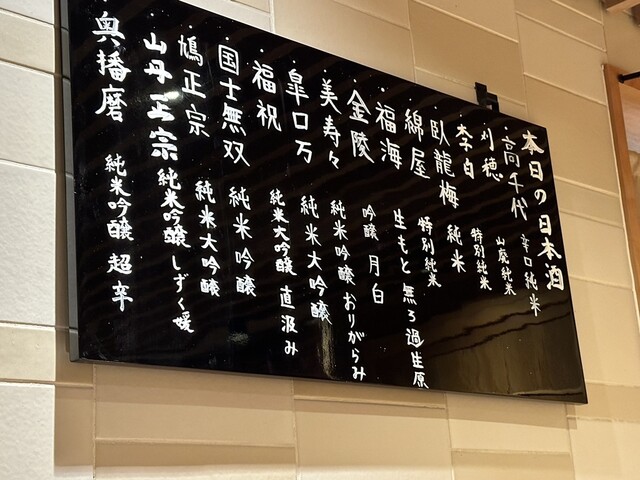 本日の日本酒
高千代 辛口純米
刈穂 山廃純米
李白 特別純米
臥龍梅 純米
綿屋 特別純米
福海 生もと 無ろ過生原
金陵 吟醸 月白
美寿々 純米吟醸 おりがらみ
皐ロ万 純米大吟醸
福祝 純米大吟醸 直汲み
国士無双 純米吟醸
鳩正宗 純米大吟醸
山丹正宗 純米吟醸 しずく媛
奥播磨 純米吟醸 超辛